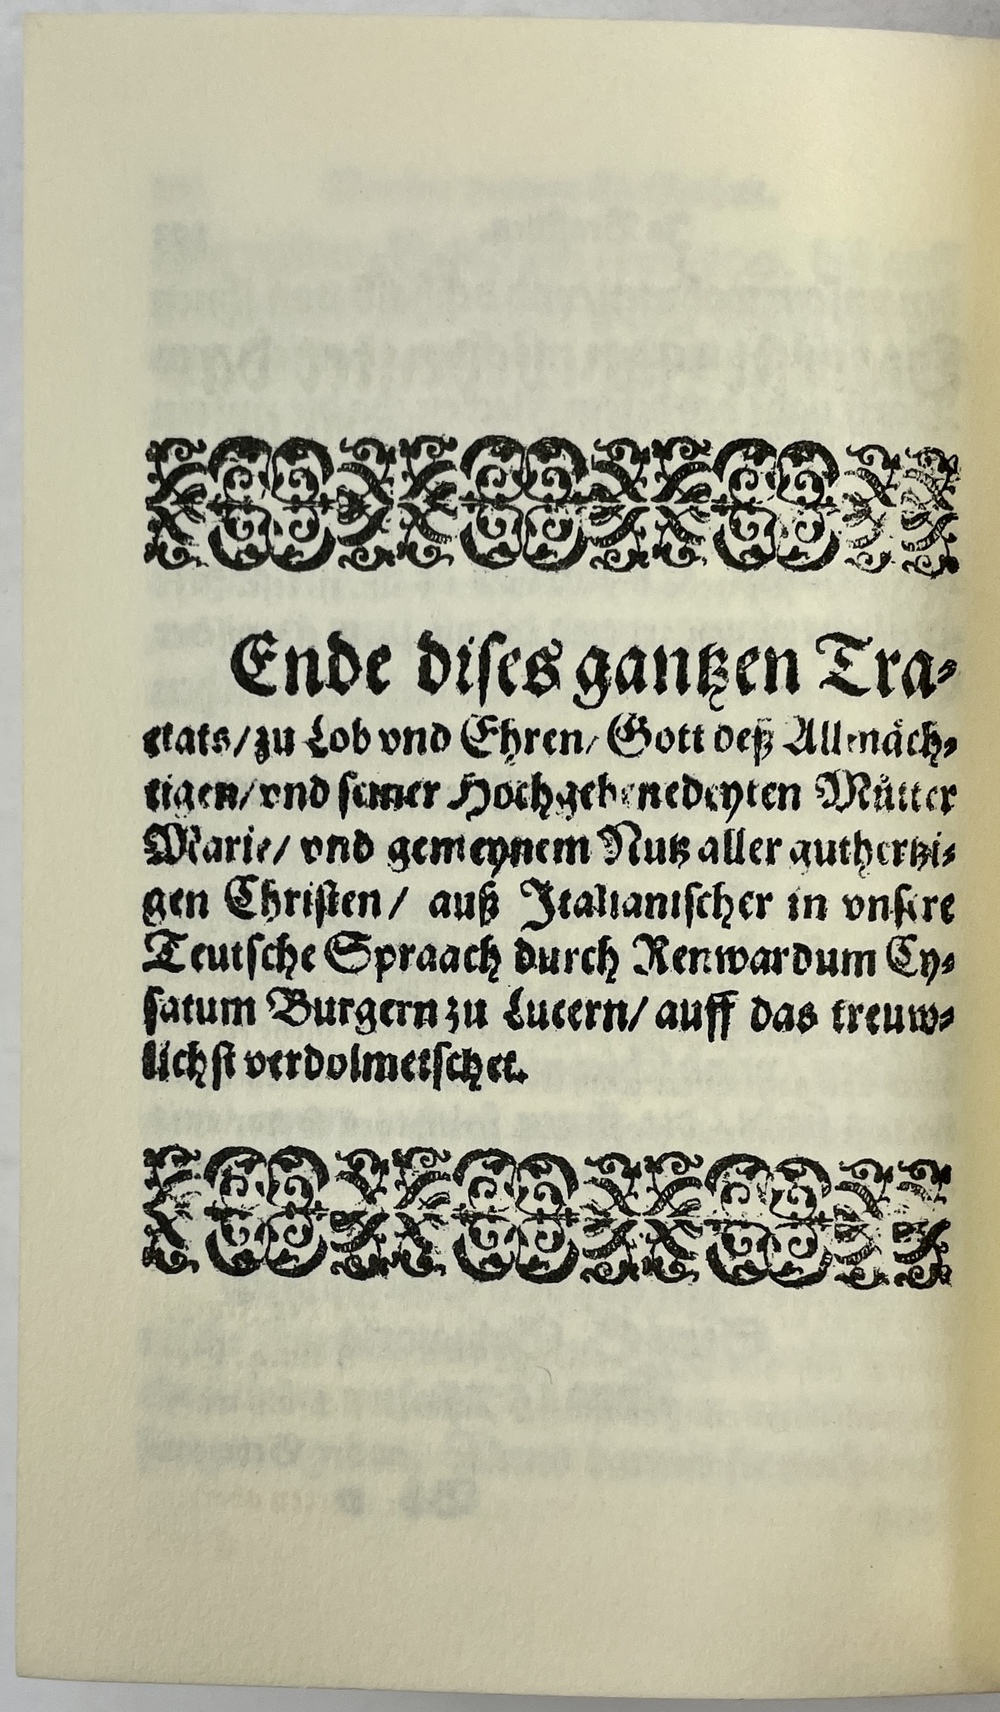 Ende dises gantzen Tra⸗
ctats/ zu Lob vnd Ehren/ Gott deß Allmäch⸗
tigen/ vnd seiner Hochgebenedeyten Můtter
Marie/ vnd gemeynem Nutz aller guthertzi⸗
gen Christen/ auß Italianischer in vnsere
Teutsche Spraach durch Renwardum Cy⸗
satum Burgern zu Lucern/ auff das treuw⸗
lichst verdolmetschet.